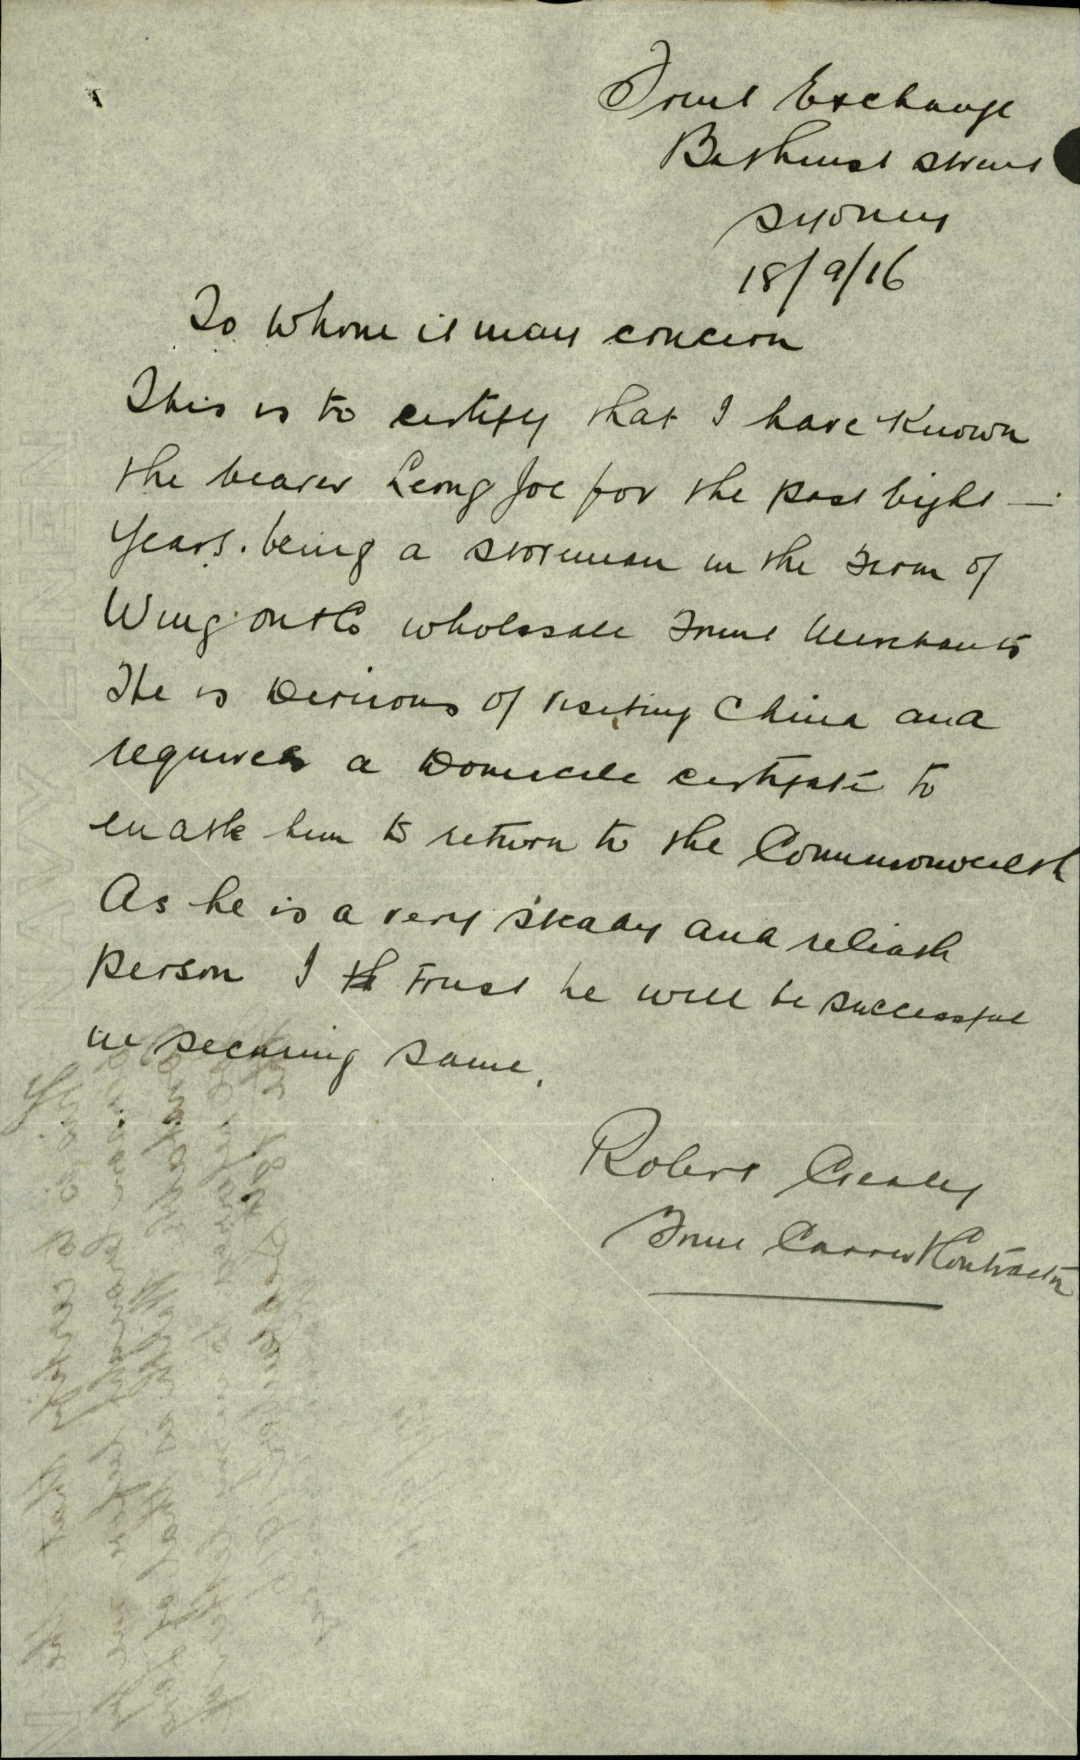 Fruit Exchange
Bathurst Street
Sydney
18/9/16
To Whom it may concern
This is to certify that I have Known
the bearer Leong Joe for the past Eight —
Years. being a storeman in the Firm of
Wing on & Co wholesale Fruit Merchants
He is Desirous of visiting China and
requires a Domicile certificate to
enable him to return to the Commonwealth
As he is a very steady and reliable
person I th trust he will be successful
in securing same.
Robert
Fruit Carrier & Contractor